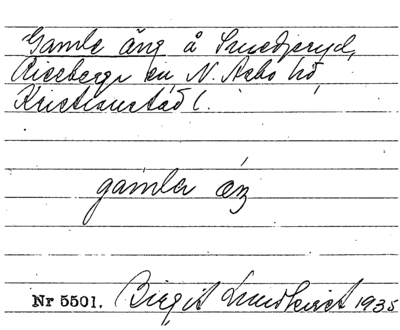 Gamla äng å Smedjeryd,
Riseberga sn N. Åsbo hd
Kristianstad l.
gamla äŋ
Nr 5501. Birgit Lundkvist 1935